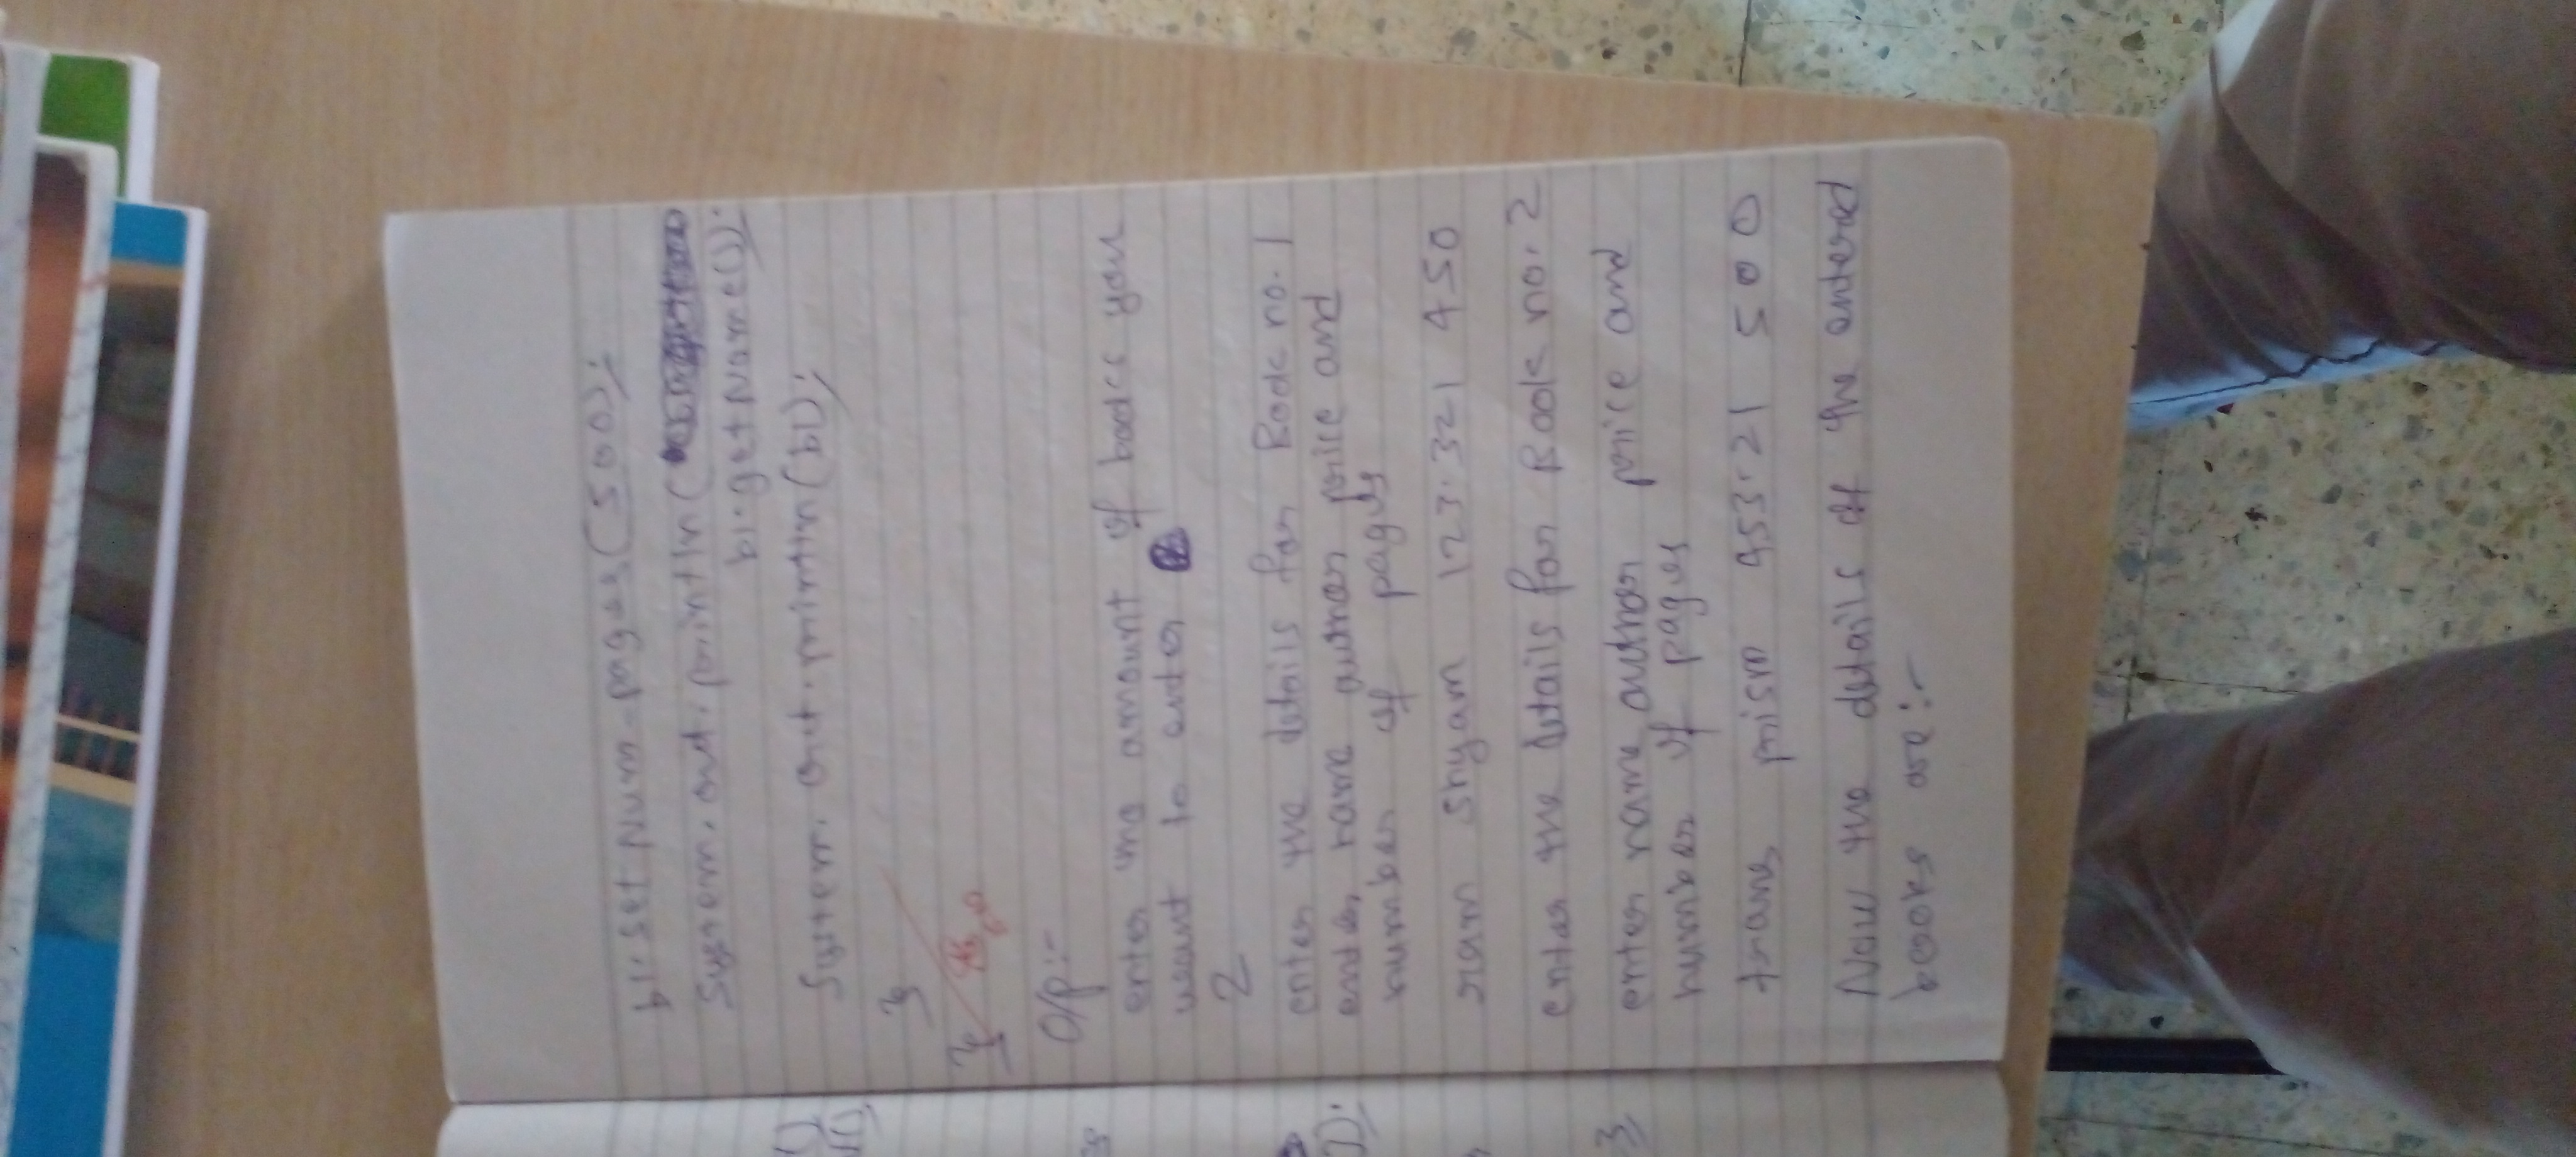 b1.set Num_pages(500);
System.out.println(
b1.getName());
System.out.println(b1);
}
}
O/p:-
enter the amount of books you
want to enter
2
enter the details for Book no.1
enter name author price and
number of pages
ram shyam 123.321 450
enter the details for Book no. 2
enter name author price and
number of pages
453.21 500
Now the details of the entered
books are:-